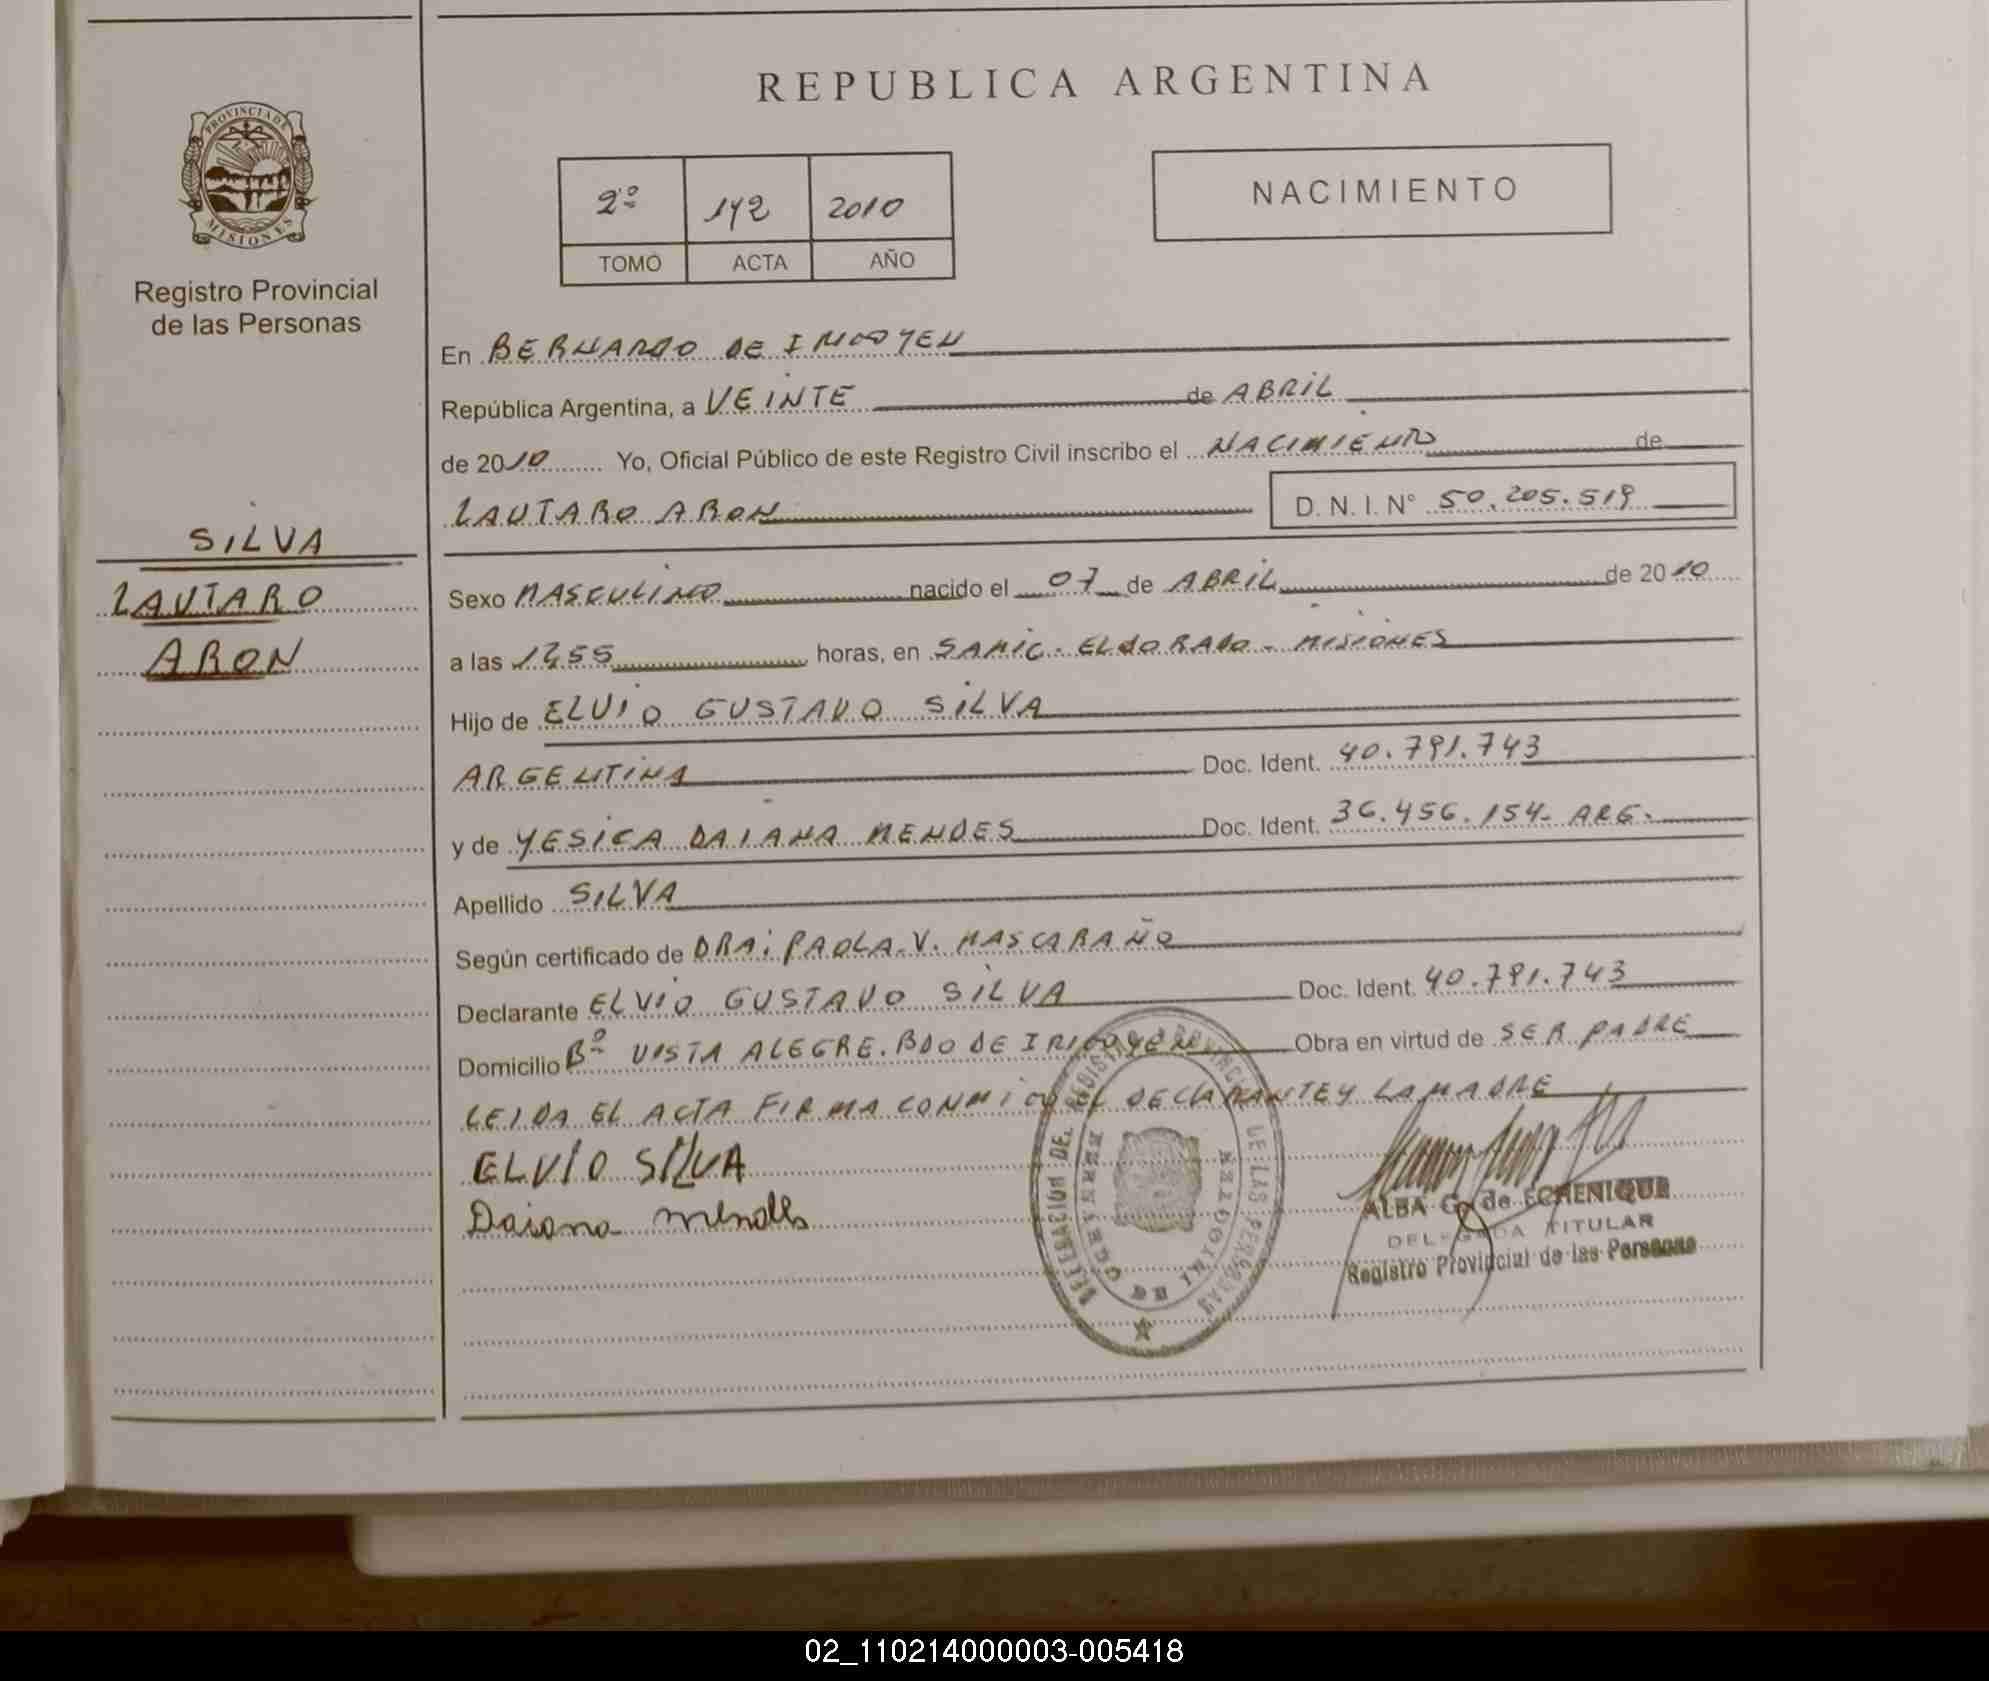 REPUBLICA ARGENTINA
PROVINCIA DE
MISIONES
Registro Provincial
de las Personas
2º 142 2010
TOMO ACTA AÑO
NACIMIENTO
En BERNARDO DE IRIGOYEN
República Argentina, a VEINTE de ABRIL
de 2010 Yo, Oficial Público de este Registro Civil inscribo el NACIMIENTO de
LAUTARO ARON D. N. I. Nº 50.205.519
SILVA
LAUTARO
ARON
Sexo MASCULINO nacido el 07 de ABRIL de 2010
a las 1255 horas, en SAMIC. ELDORADO - MISIONES
Hijo de ELVIO GUSTAVO SILVA
ARGENTINA Doc. Ident. 40.791.743
y de YESICA DAIANA MENDES Doc. Ident. 36.456.154- ARG.
Apellido SILVA
Según certificado de DRA: PAOLA.V. MASCARAÑO
Declarante ELVIO GUSTAVO SILVA Doc. Ident. 40.791.743
Domicilio Bº VISTA ALEGRE. BDO DE IRIGOYEN Obra en virtud de SER PADRE
LEIDA EL ACTA FIRMA CONMIGO EL DECLARANTE Y LA MADRE
ELVIO SILVA
Daiana Mendes
DELEGACIÓN DEL REGISTRO PROVINCIAL DE LAS PERSONAS
BERNARDO DE IRIGOYEN
ALBA G. de ECHENIQUE
DELEGADA TITULAR
Registro Provincial de las Personas
02_110214000003-005418